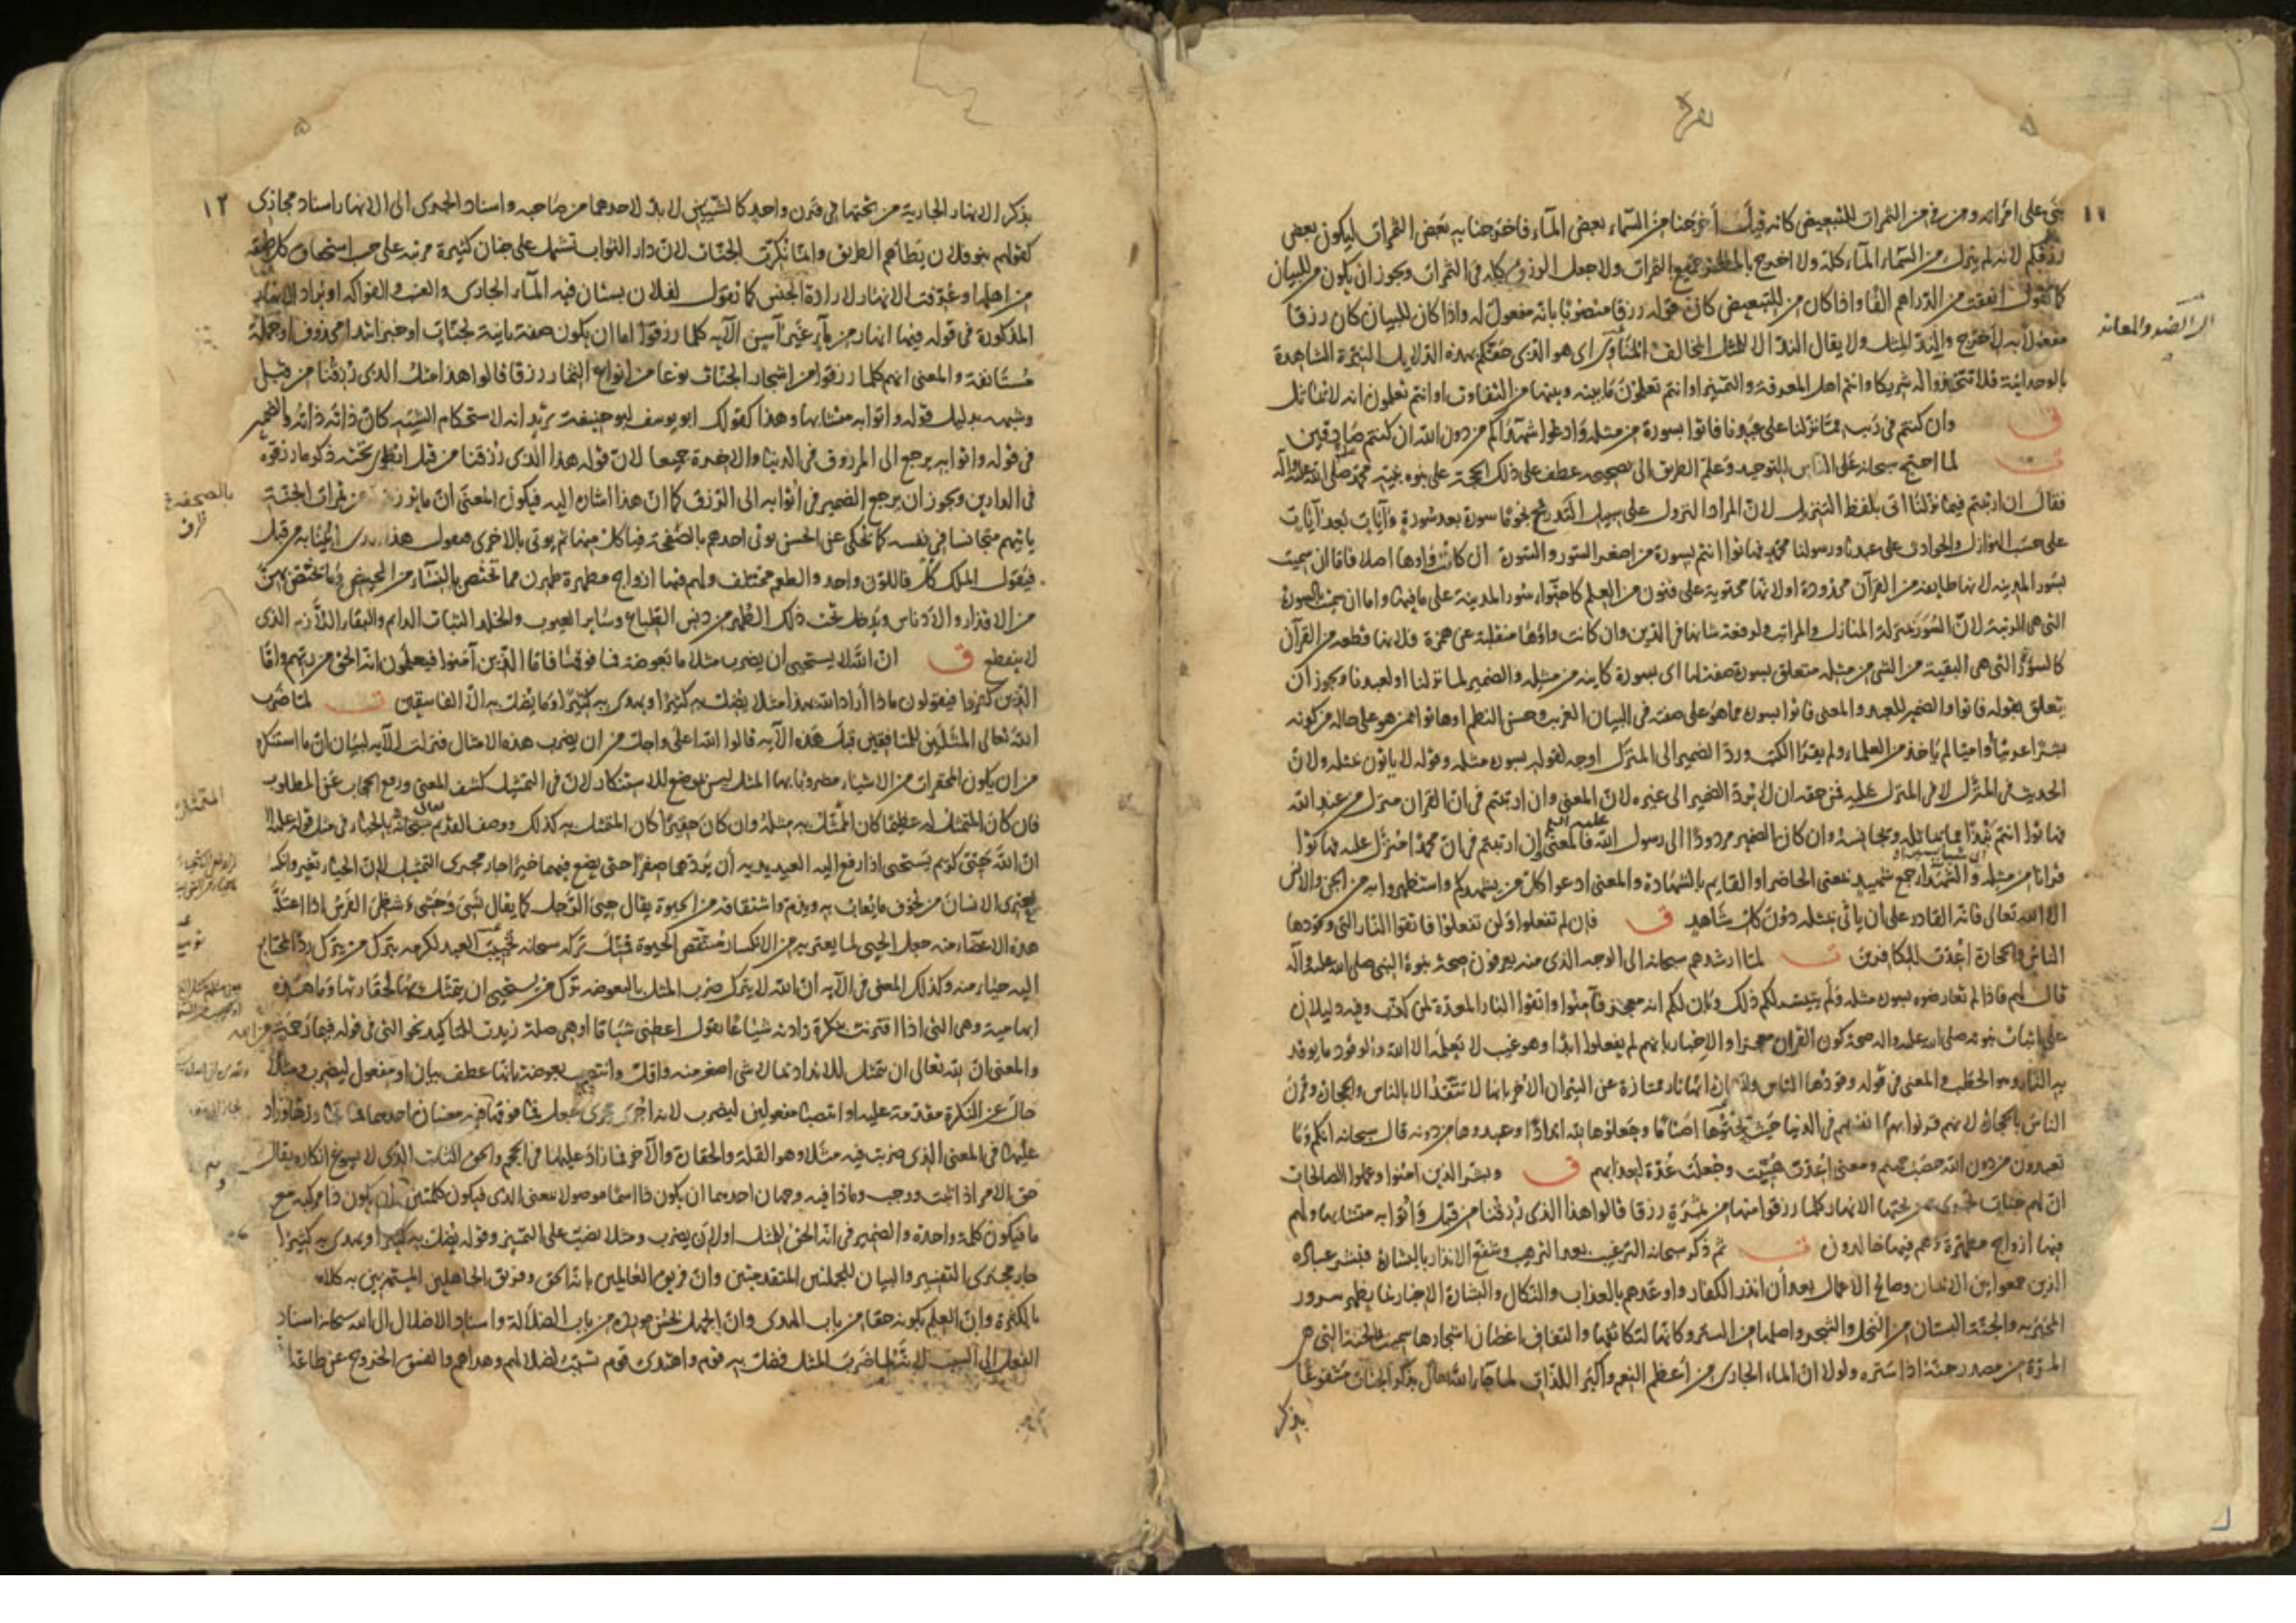 ١١
شيء على امرانه ومن في من الثمرات للتبعيض كانه قيل أخرجنا من السماء بعض الماء فاخرجنا به بعض الثمرات ليكون بعض
رزقكم لانه لم ينزل من السماء الماء كله ولا اخرج بالمطر جميع الثمرات ولا جعل الرزق كله في الثمرات ويجوز ان يكون من للبيان
كما تقول انفقت من الدراهم الفا واذا كان من للتبعيض كان قوله رزقا منصوبا بانه مفعول له واذا كان للبيان كان رزقا
مفعولا به لأخرج والند المثل ولا يقال الند الا للمثل المخالف المناوى اى هو الذى خصكم بهذه الدلايل النيرة الشاهدة
بالوحدانية فلا تتخذوا له شريكا وانتم اهل المعرفة والتمييز او انتم تعلمون ما بينه وبينها من التفاوت او انتم تعلمون انه لا يماثل
ق وان كنتم في ريب مما نزلنا على عبدنا فاتوا بسورة من مثله وادعوا شهداكم من دون الله ان كنتم صادقين
ت لما احتج سبحانه على الناس للتوحيد وعلم الطريق الى تصحيحه عطف على ذلك الحجة على نبوة نبيه محمد صلى الله عليه وآله
فقال ان ارتبتم فيما نزلنا اتى بلفظ التنزيل لان المراد النزول على سبيل التدريج نجوما سورة بعد سورة وآيات بعد آيات
على حسب النوازل والحوادث على عبدنا ورسولنا محمد فهاتوا انتم بسورة من اصغر السور والسورة ان كانت واوها اصلا فاما ان سميت
بسور المدينة لانها طايفة من القرآن محدودة او لانها محتوية على فنون من العلم كاحتواء سور المدينة على ما فيها واما ان سميت بالسورة
التى هى الرتبة لان السور بمنزلة المنازل والمراتب ولرفعة شانها في الدين وان كانت واوها منقلبة عن همزة فلانها قطعة من القرآن
كالسؤرة التى هى البقية من الشى من مثله متعلق بسورة صفة لها اى بسورة كاينة من مثله والضمير لما نزلنا او لعبدنا ويجوز ان
يتعلق بقوله فاتوا والضمير للعبد والمعنى فاتوا بسورة مما هو على صفته في البيان الغريب وحسن النظم او هاتوا ممن هو على حاله من كونه
بشرا عربيا أو اميا لم ياخذ من العلماء ولم يقرا الكتب ورد الضمير الى المنزل اوجه لقوله بسورة مثله وقوله لا ياتون بمثله ولان
الحديث في المنزل لا في المنزل عليه فمن حقه ان لا يرد الضمير الى غيره لان المعنى وان ارتبتم في ان القران منزل من عند الله
فهاتوا انتم نبذا مما يماثله ويجانسه وان كان الضمير مردودا الى رسول الله فالمعنى إن ارتبتم في ان محمدا منزل عليه فهاتوا
قرانا من مثله والشهداء جمع شهيد بمعنى الحاضر او القايم بالشهادة والمعنى ادعوا كل من يشهدكم واستظهروا به من الجن والانس
الا الله تعالى فانه القادر على ان يأتى بمثله دون كل شاهد ق فإن لم تفعلوا ولن تفعلوا فاتقوا النار التى وقودها
الناس والحجارة أعدت للكافرين ت لما ارشدهم سبحانه الى الوجه الذى منه يعرفون صحة نبوة النبى صلى الله عليه وآله
قال لهم فاذا لم تعارضوه بسورة مثله ولم يتيسر لكم ذلك وبان لكم انه معجز فآمنوا واتقوا النار المعدة لمن كذب وفيه دليلان
على اثبات نبوته صلى الله عليه واله صحة كون القران معجزا والإخبار بانهم لم يفعلوا ابدا وهو غيب لا يعلمه الا الله والوقود ما يوقد
به النار وهو الحطب والمعنى في قوله وقودها الناس والحجارة انها نار ممتازة عن النيران الأخر بانها لا تتقد الا بالناس والحجارة وقرن
الناس بالحجارة لانهم قرنوا بها انفسهم في الدنيا حيث نحتوها اصناما وجعلوها لله اندادا وعبدوها من دونه قال سبحانه انكم وما
تعبدون من دون الله حصب جهنم ومعنى اعدت هيئت وجعلت عدة لعذابهم ق وبشر الذين امنوا وعملوا الصالحات
ان لهم جنات تجرى من تحتها الانهار كلما رزقوا منها من ثمرة رزقا قالوا هذا الذى رزقنا من قبل وأتوا به متشابها ولهم
فيها ازواج مطهرة وهم فيها خالدون ت ثم ذكر سبحانه الترغيب بعد الترهيب وشفع الانذار بالبشارة فبشر عباده
الذين جمعوا بين الايمان وصالح الاعمال بعد أن انذر الكفار واوعدهم بالعذاب والنكال والبشارة الاخبار بما يظهر سرور
المخبر به والجنة البستان من النخل والشجر واصلها من الستر وكانها لتكاثفها والتفاف اغصان اشجارها سميت بالجنة التى هى
المرة من مصدر جنه اذا ستره ولولا ان الماء الجارى من أعظم النعم وأكبر اللذات لما جاء الله تعالى بذكر الجنات مشفوعا
بذكر
١٢
بذكر الانهار الجارية من تحتها في قرن واحد كالشيئين لا بد لاحدهما من صاحبه واسناد الجرى الى الانهار اسناد مجازى
كقولهم بنو فلان يطأهم الطريق وانما نكرت الجنات لان دار الثواب تشتمل على جنان كثيرة مرتبة على حسب استحقاق كل طبقة
من اهلها وعرفت الانهار لارادة الجنس كما تقول لفلان بستان فيه الماء الجارى والعنب والفواكه او يراد الانهار
المذكورة في قوله فيها انهار من ماء غير آسن الآية كلما رزقوا اما ان يكون صفة ثانية لجنات او خبر ابتدا محذوف او جملة
مستأنفة والمعنى انهم كلما رزقوا من اشجار الجنات نوعا من انواع الثمار رزقا قالوا هذا مثل الذى رزقنا من قبل
وشبهه بدليل قوله واتوا به متشابها وهذا كقولك ابو يوسف ابو حنيفة تريد انه لاستحكام الشبه كان ذاته ذاته والضمير
في قوله واتوا به يرجع الى المرزوق في الدنيا والاخرة جميعا لان قوله هذا الذى رزقنا من قبل انطوى تحته ذكر ما رزقوه
في الدارين ويجوز ان يرجع الضمير في أتوا به الى الرزق كما ان هذا اشارة اليه فيكون المعنى ان ما يرزقون من ثمرات الجنة
ياتيهم متجانسا في نفسه كما يحكى عن الحسن يوتى احدهم بالصحفة فياكل منها ثم يوتى بالاخرى فيقول هذا الذى اتينا به من قبل
فيقول الملك كل فاللون واحد والطعم مختلف ولهم فيها ازواج مطهرة طهرن مما تختص بالنساء من المحيض وما يختص بهن
من الاقذار والادناس ويدخل تحت ذلك الطهر من دنس الطباع وساير العيوب والخلد الثبات الدايم والبقاء اللازم الذى
لا ينقطع ق ان الله لا يستحيى أن يضرب مثلا ما بعوضة فما فوقها فاما الذين آمنوا فيعلمون انه الحق من ربهم واما
الذين كفروا فيقولون ماذا أراد الله بهذا مثلا يضل به كثيرا ويهدى به كثيرا وما يضل به الا الفاسقين ت لما ضرب
الله تعالى المثلين للمنافقين قبل هذه الآية قالوا الله اعلى واجل من ان يضرب هذه الامثال فنزلت الآية لبيان ان ما استنكره
من ان يكون المحقرات من الاشياء مضروبا بها المثل ليس بموضع للاستنكار لان في التمثيل كشف المعنى ورفع الحجاب عن المطلوب
فان كان المتمثل له عظيما كان المتمثل به مثله وان كان حقيرا كان المتمثل به كذلك ووصف القديم سبحانه بالحياء في مثل قوله عليه السلام
ان الله حيى كريم يستحيى اذا رفع اليه العبد يديه أن يردهما صفرا حتى يضع فيهما خيرا جار مجرى التمثيل لان الحياء تغير وانكسار
يعترى الانسان من تخوف ما يعاب به ويذم واشتقاقه من الحيوة يقال حيى الرجل كما يقال نسى وحشى وشظى الفرس اذا اعتلت
هذه الاعضاء منه جعل الحيى لما يعتريه من الانكسار منتقص الحيوة فمثل تركه سبحانه تخييب العبد لكرمه بترك من يترك رد المحتاج
اليه حياء منه وكذلك المعنى في الآية ان الله لا يترك ضرب المثل بالبعوضة ترك من يستحيى ان يتمثل بها لحقارتها وما هذه
ابهامية وهى التى اذا اقترنت بنكرة زادته شياعا تقول اعطنى شيئا ما او هى صلة زيدت للتاكيد نحو التى في قوله فبما رحمة من الله
والمعنى ان لله تعالى ان يتمثل للانداد بما لا شى اصغر منه واقل وانتصب بعوضة بانها عطف بيان او مفعول ليضرب ومثلا
حال عن النكرة مقدمة عليه او انتصبا مفعولين ليضرب لانه اجرى مجرى جعل فما فوقها فيه معنيان احدهما فما تجاوزها وزاد
عليها في المعنى الذى ضربت فيه مثلا وهو القلة والحقارة والآخر فما زاد عليها في الحجم والحق الثابت الذى لا يسوغ انكاره يقال
حق الامر اذا ثبت ووجب وماذا فيه وجهان احدهما ان يكون ذا اسما موصولا بمعنى الذى فيكون كلمتين وان يكون ذا مركبة مع
ما فيكون كلمة واحدة والضمير في انه الحق للمثل او لأن يضرب ومثلا نصب على التمييز وقوله يضل به كثيرا ويهدى به كثيرا
جار مجرى التفسير والبيان للجملتين المتقدمتين وان فريق العالمين بانه الحق وفريق الجاهلين المستهزئين به كلاهما
بالكثرة وان العلم بكونه حقا من باب الهدى وان الجهل بحسن مورده من باب الضلالة واسناد الاضلال الى الله سبحانه اسناد
الفعل الى السبب لانه لما ضرب المثل فضل به قوم واهتدى قوم تسبب لضلالهم وهداهم والفسق الخروج عن طاعة